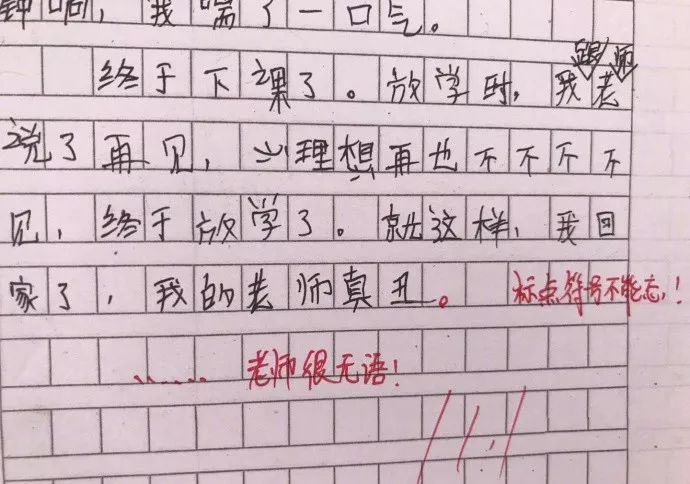 钟响，我喘了一口气。
终于下课了。放学时，我跟老师
说了再见，心理想再也不不不不
见，终于放学了。就这样，我回
家了，我的老师真丑。 标点符号不能忘！
…… 老师很无语！
11.1